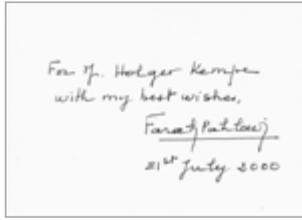 For M. Holger Kempe
with my best wishes,
Farah Pahlavi
21st July 2000